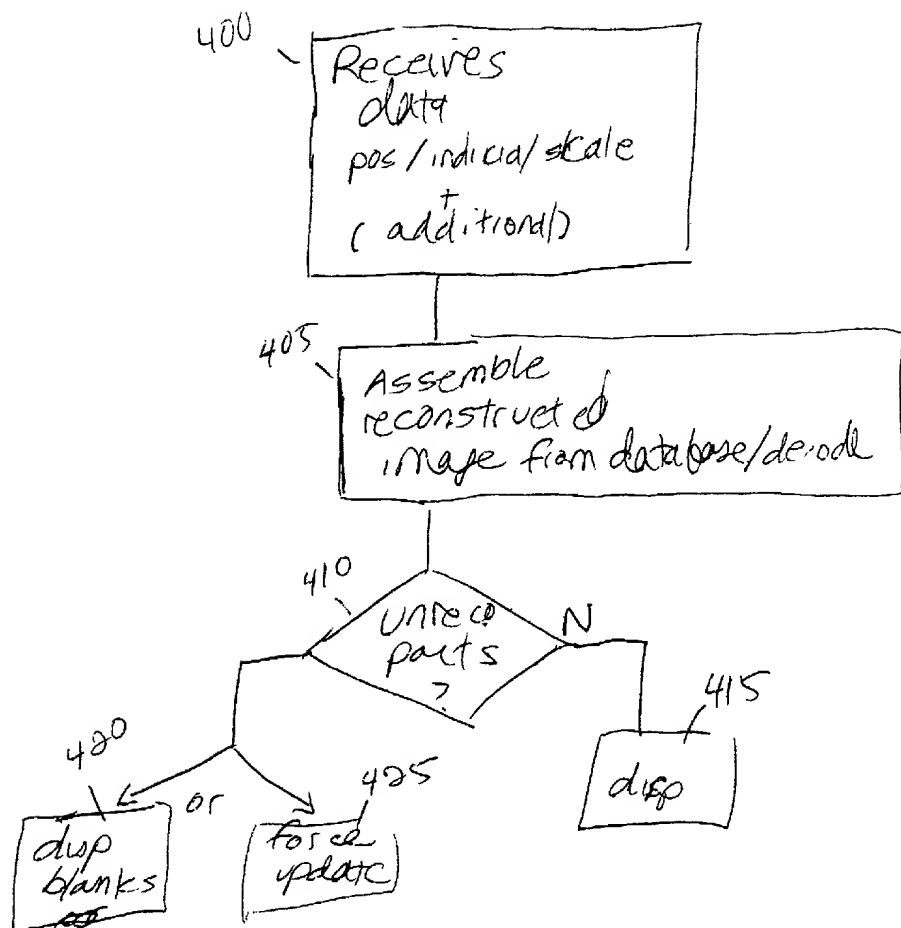 400
Receives
data
pos/indicia/scale
+
(additional)
405
Assemble
reconstructed
image from database/decode
410
unreco
parts
?
N
415
disp
420
disp
blanks
or
425
force
update